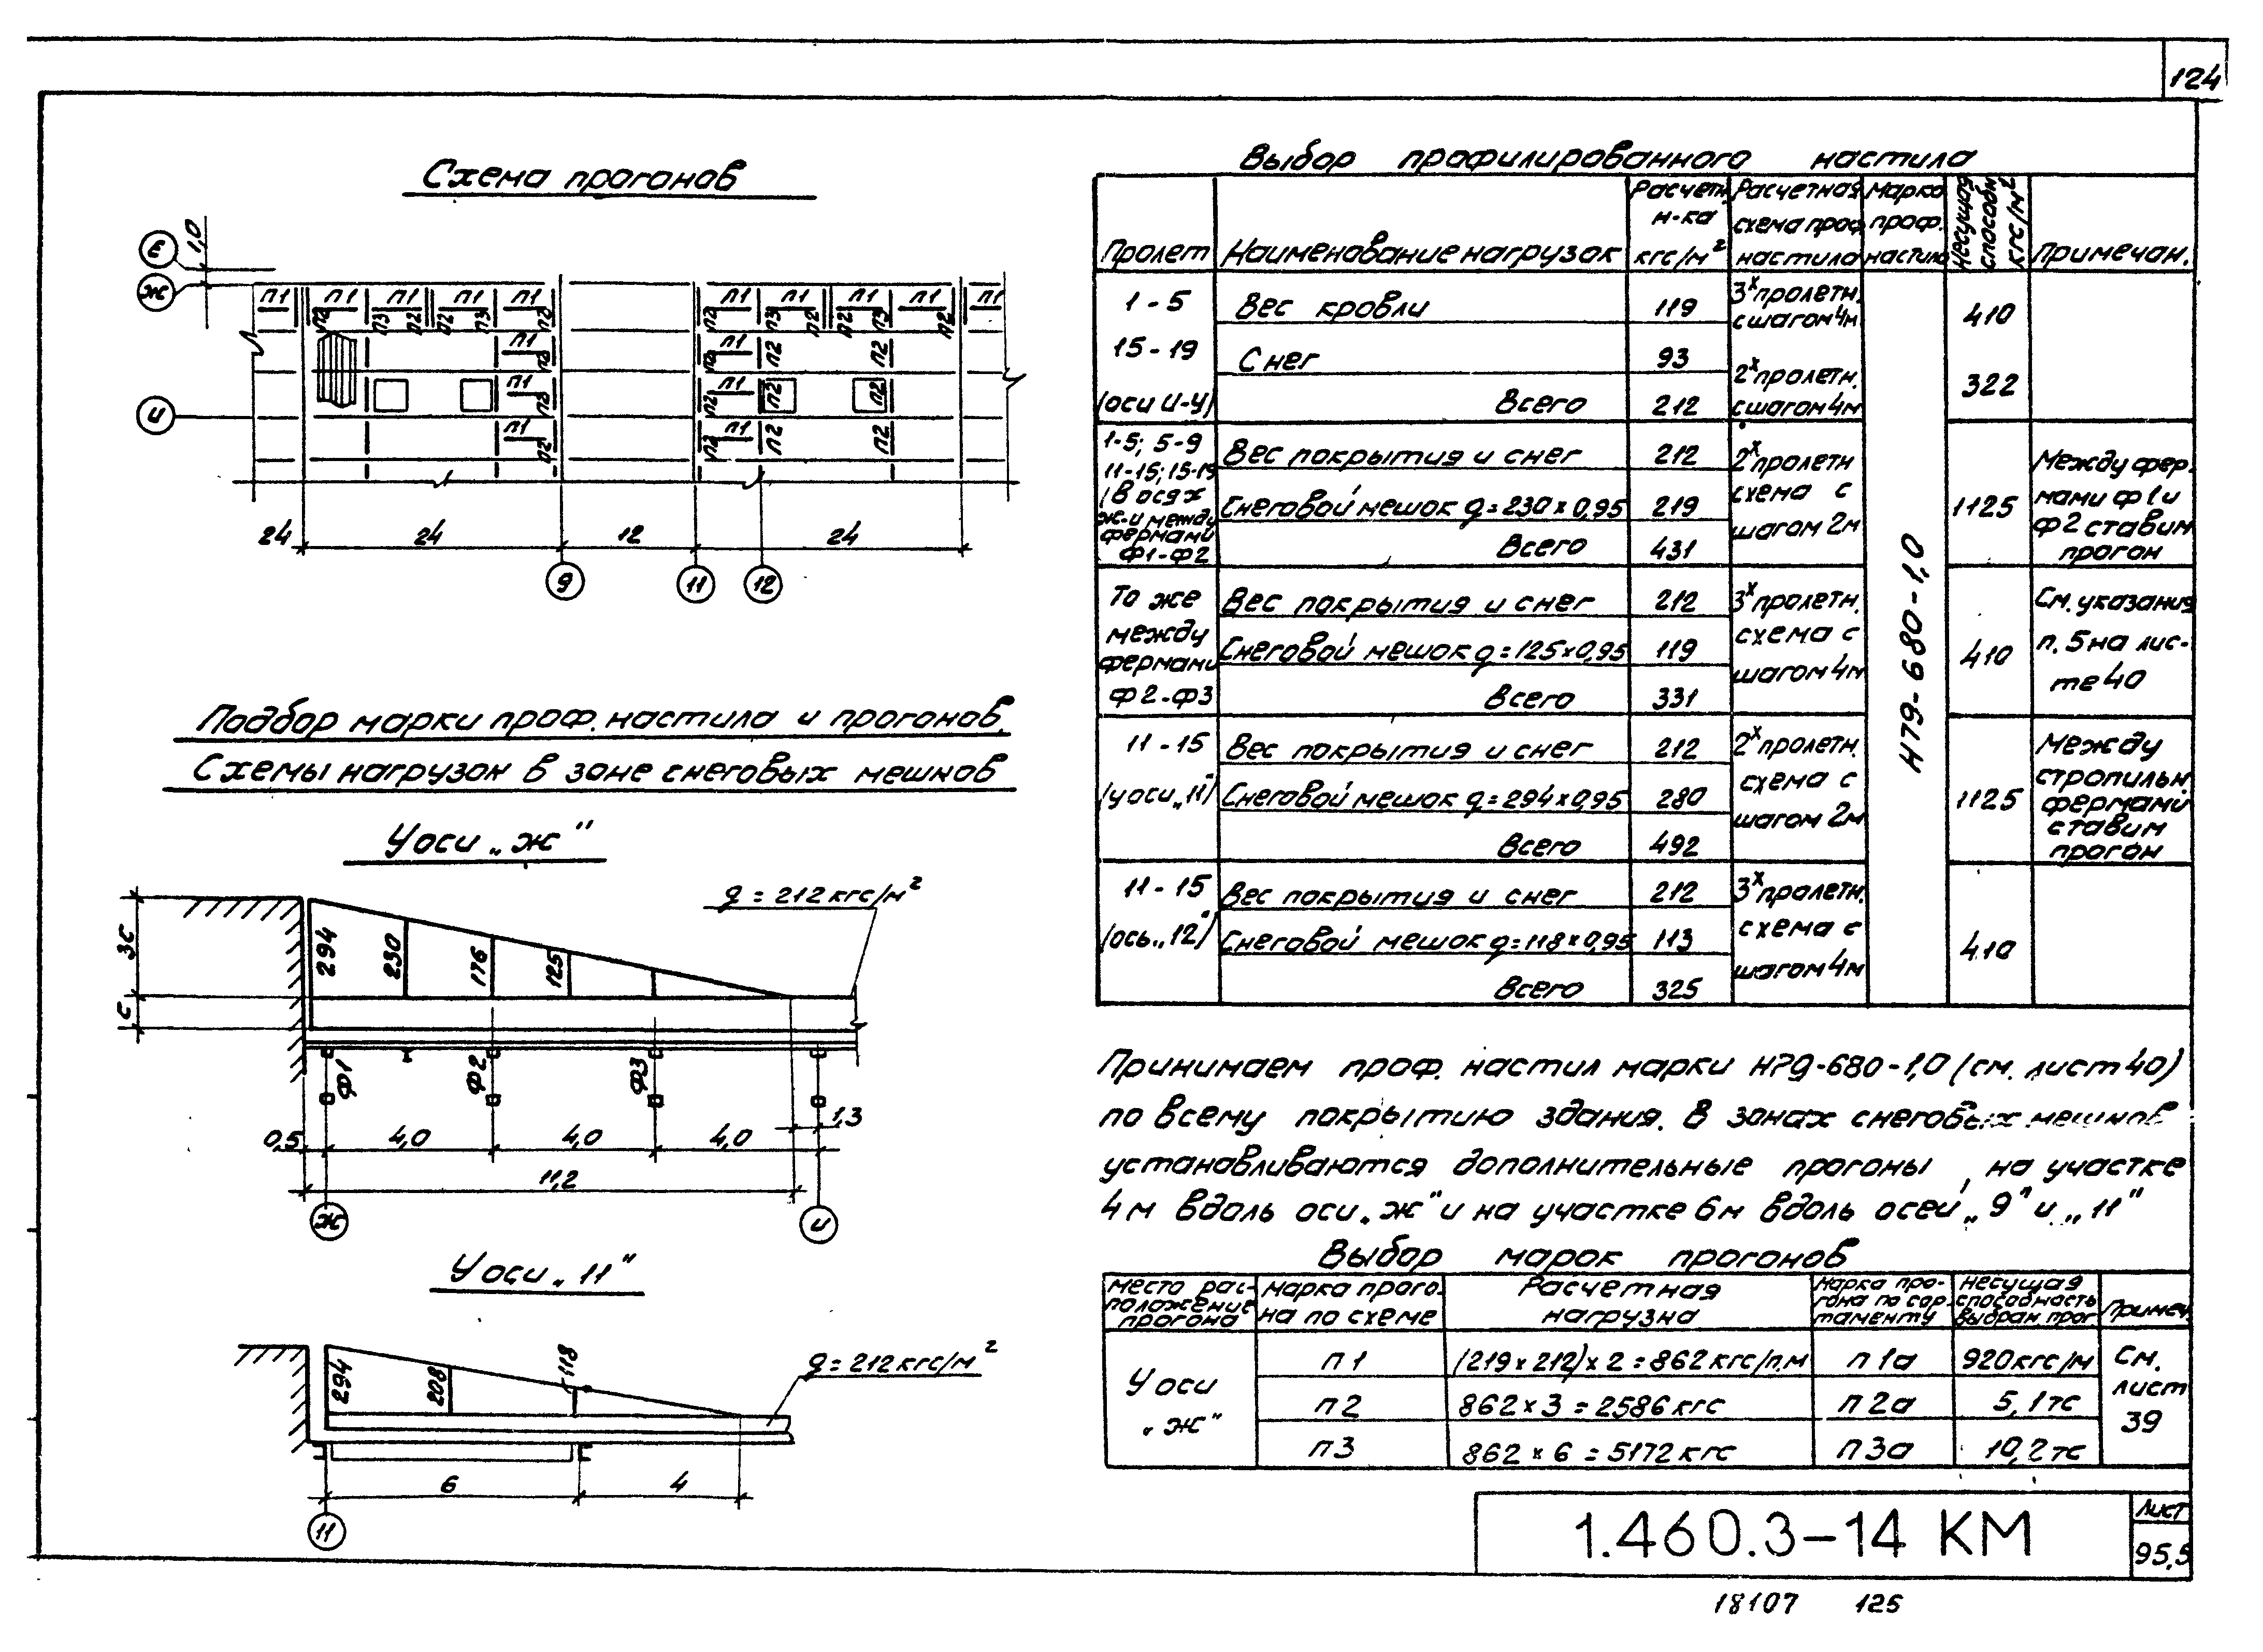 124
Схема прогонов
Е
1,0
Ж
И
П1 П1 П1 П1 П1 П1 П1 П1 П1 П1
П2 П3 П2 П2 П3 П2 П2 П3 П2 П2 П3 П2
П1 П2 П1 П2 П2 П2
П1 П2 П1 П2 П2 П2
П1 П2 П1 П2 П2 П2
24 24 12 24
9 11 12
Подбор марки проф. настила и прогонов.
Схемы нагрузок в зоне снеговых мешков
У оси „Ж"
q = 212 кгс/м²
3с
с
294 230 176 125
Ф1 Ф2 Ф3
1,3
0,5 4,0 4,0 4,0
11,2
Ж И
У оси „11"
294 208 118
q = 212 кгс/м²
6 4
11
Выбор профилированного настила
Пролет
Наименование нагрузок
Расчетн. н-ка кгс/м²
Расчетная схема проф. настила
Марка проф. настила
Несущая способн. кгс/м²
Примечан.
1-5
15-19
/оси И-Ч/
Вес кровли 119
Снег 93
Всего 212
3х пролетн. с шагом 4м
2х пролетн. с шагом 4м
410
322
Н79-680-1,0
1-5; 5-9
11-15; 15-19
/В осях
ж-и между
фермами
Ф1-Ф2
Вес покрытия и снег 212
Снеговой мешок q=230×0,95 219
Всего 431
2х пролетн
схема с
шагом 2м
1125
Между фер-
мами Ф1 и
Ф2 ставим
прогон
То же
между
фермами
Ф2-Ф3
Вес покрытия и снег 212
Снеговой мешок q=125×0,95 119
Всего 331
3х пролетн.
схема с
шагом 4м
410
См. указания
п. 5 на лис-
те 40
11-15
/у оси „11"/
Вес покрытия и снег 212
Снеговой мешок q=294×0,95 280
Всего 492
2х пролетн.
схема с
шагом 2м
1125
Между
стропильн.
фермами
ставим
прогон
11-15
/ось „12"/
Вес покрытия и снег 212
Снеговой мешок q=118×0,95 113
Всего 325
3х пролетн.
схема с
шагом 4м
410
Принимаем проф. настил марки Н79-680-1,0 (см. лист 40)
по всему покрытию здания. В зонах снеговых мешков
устанавливаются дополнительные прогоны, на участке
4 м вдоль оси „Ж" и на участке 6м вдоль осей „9" и „11"
Выбор марок прогонов
Место рас-
положение
прогона
Марка прого-
на по схеме
Расчетная
нагрузка
Марка про-
гона по сор-
таменту
Несущая
способность
выбран. прог
Примеч.
У оси
„Ж"
П1 /219×212/×2=862кгс/п.м П1а 920кгс/м
П2 862×3=2586кгс П2а 5,1тс
П3 862×6=5172кгс П3а 10,2тс
См.
лист
39
1.460.3-14 КМ
Лист
95,5
18107 125